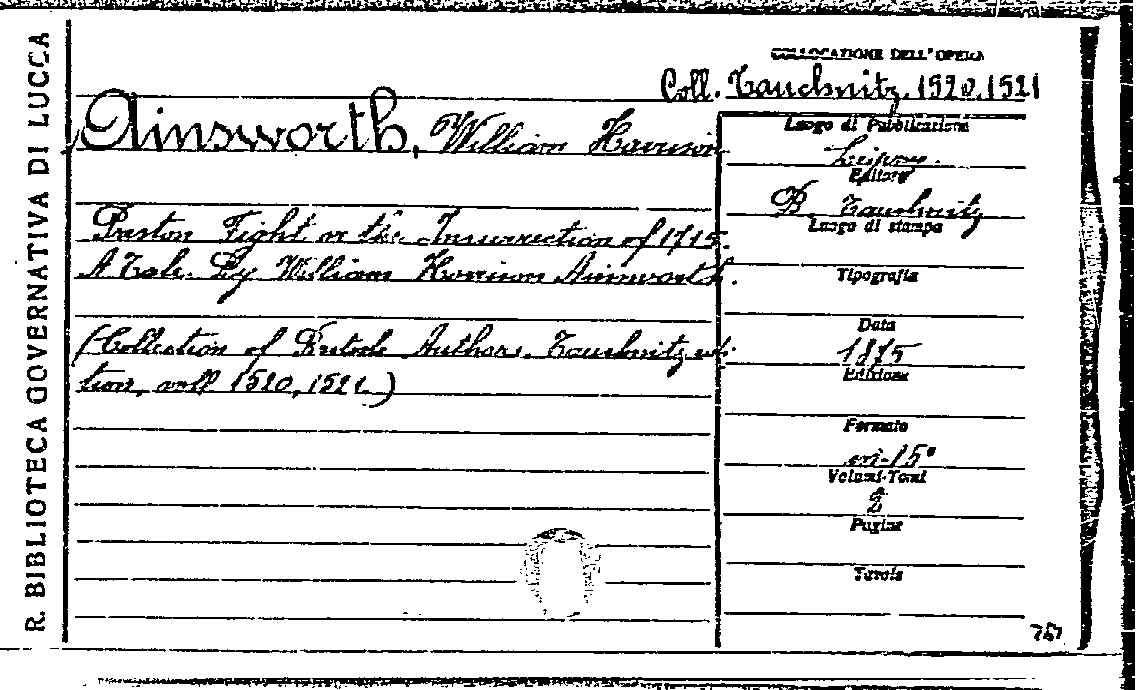 R. BIBLIOTECA GOVERNATIVA DI LUCCA
COLLOCAZIONE DELL'OPERA
Coll. Tauchnitz. 1520.1521
Ainsworth, William Harrison
Preston Fight or the Insurrection of 1715.
A Tale. By William Harrison Ainsworth.
(Collection of British Authors. Tauchnitz edi-
tion, voll 1520, 1521.)
Luogo di Pubblicazione
Editore
B. Tauchnitz
Luogo di stampa
Tipografia
Data
1875
Edizione
Formato
in-15°
Volumi-Tomi
2
Pagine
Tavole